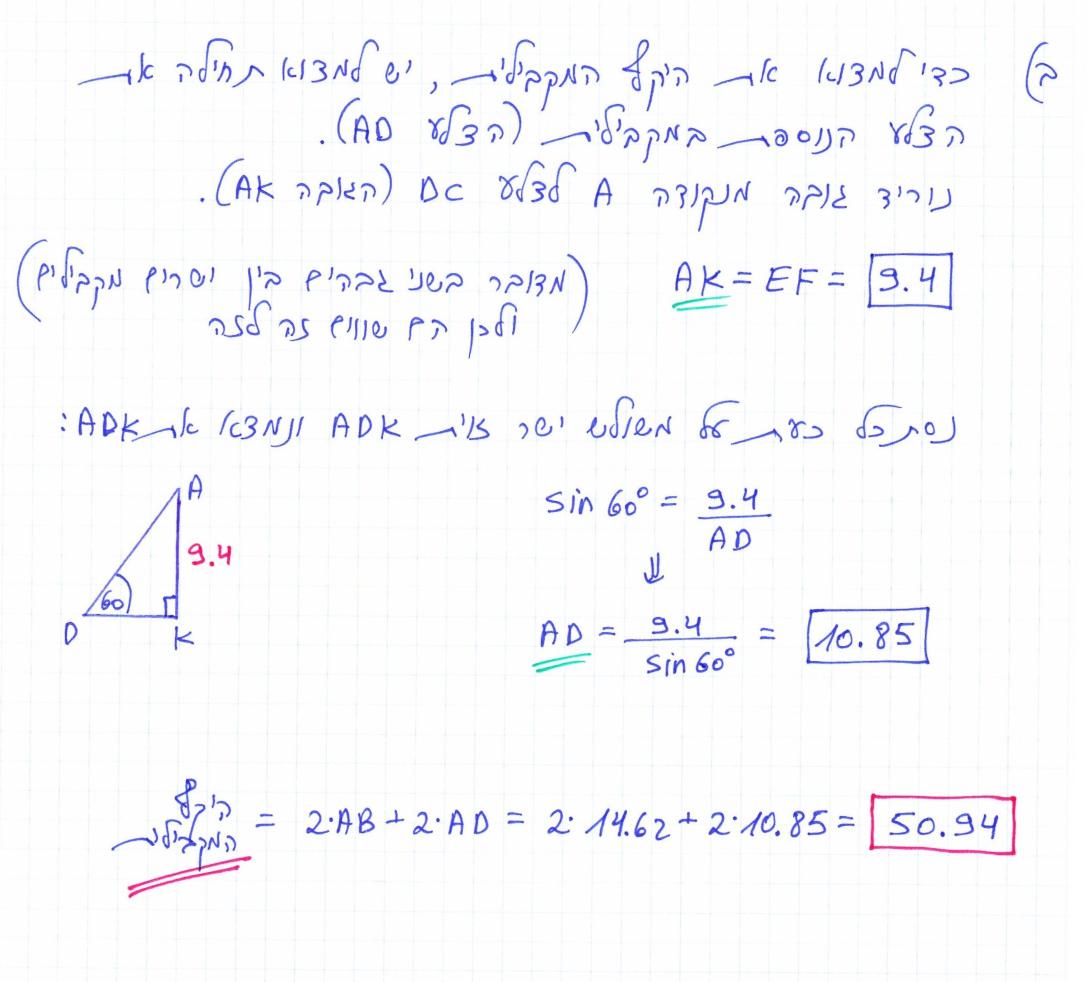 ב) כדי למצוא את היקף המקבילית, יש למצוא תחילה את
הצלע הנוספת במקבילית (הצלע AD).
נוריד גובה מנקודה A לצלע DC (הגובה AK).
AK = EF = 9.4
(מדובר בשני גבהים בין ישרים מקבילים
ולכן הם שווים זה לזה)
נסתכל כעת על משולש ישר זוית ADK ונמצא את ADK:
A
9.4
60
D
K
sin 60° = 9.4 / AD
⇓
AD = 9.4 / sin 60° = 10.85
היקף המקבילית = 2·AB + 2·AD = 2·14.62 + 2·10.85 = 50.94